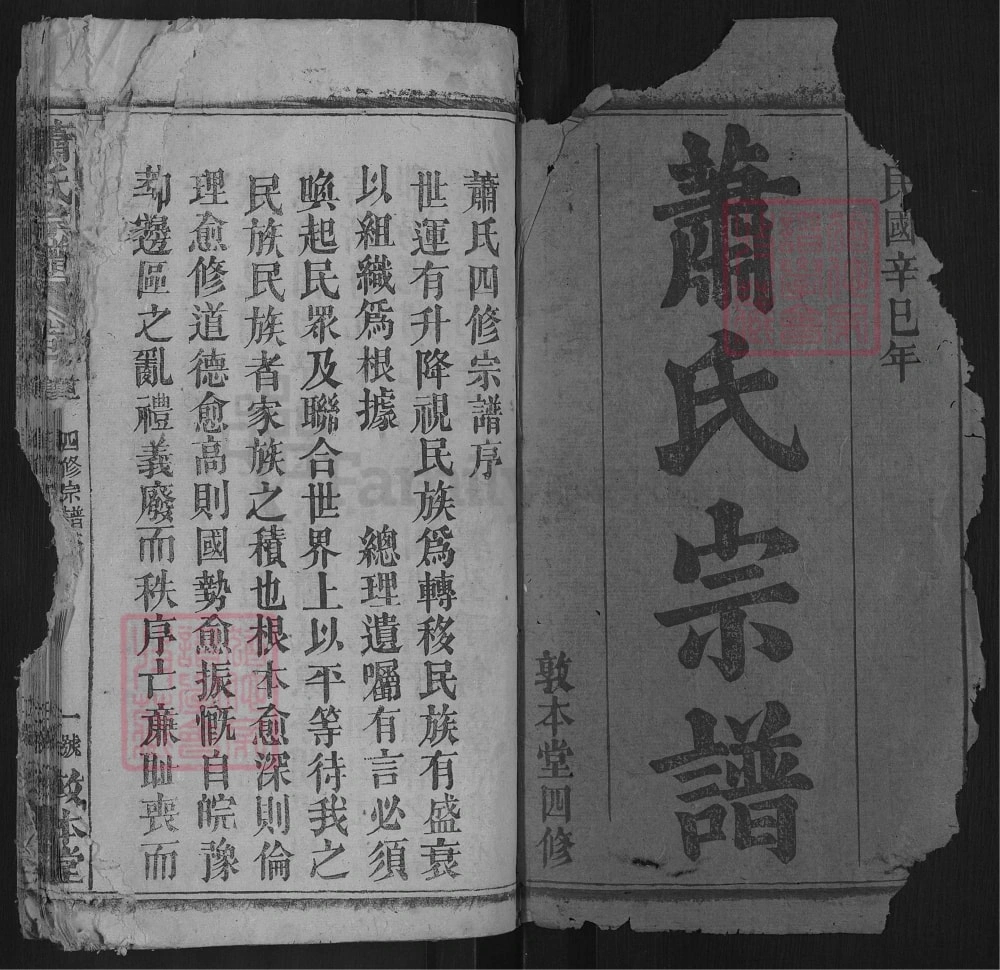 民國辛巳年
蕭氏宗譜
敦本堂四修
蕭氏四修宗譜序
世運有升降視民族為轉移民族有盛衰
以組織為根據　總理遺囑有言必須
喚起民眾及聯合世界上以平等待我之
民族民族者家族之積也根本愈深則倫
理愈修道德愈高則國勢愈振慨自皖豫
刦邊區之亂禮義廢而秩序亡亷耻喪而
蕭氏宗譜
四修宗譜
一號　敦本堂